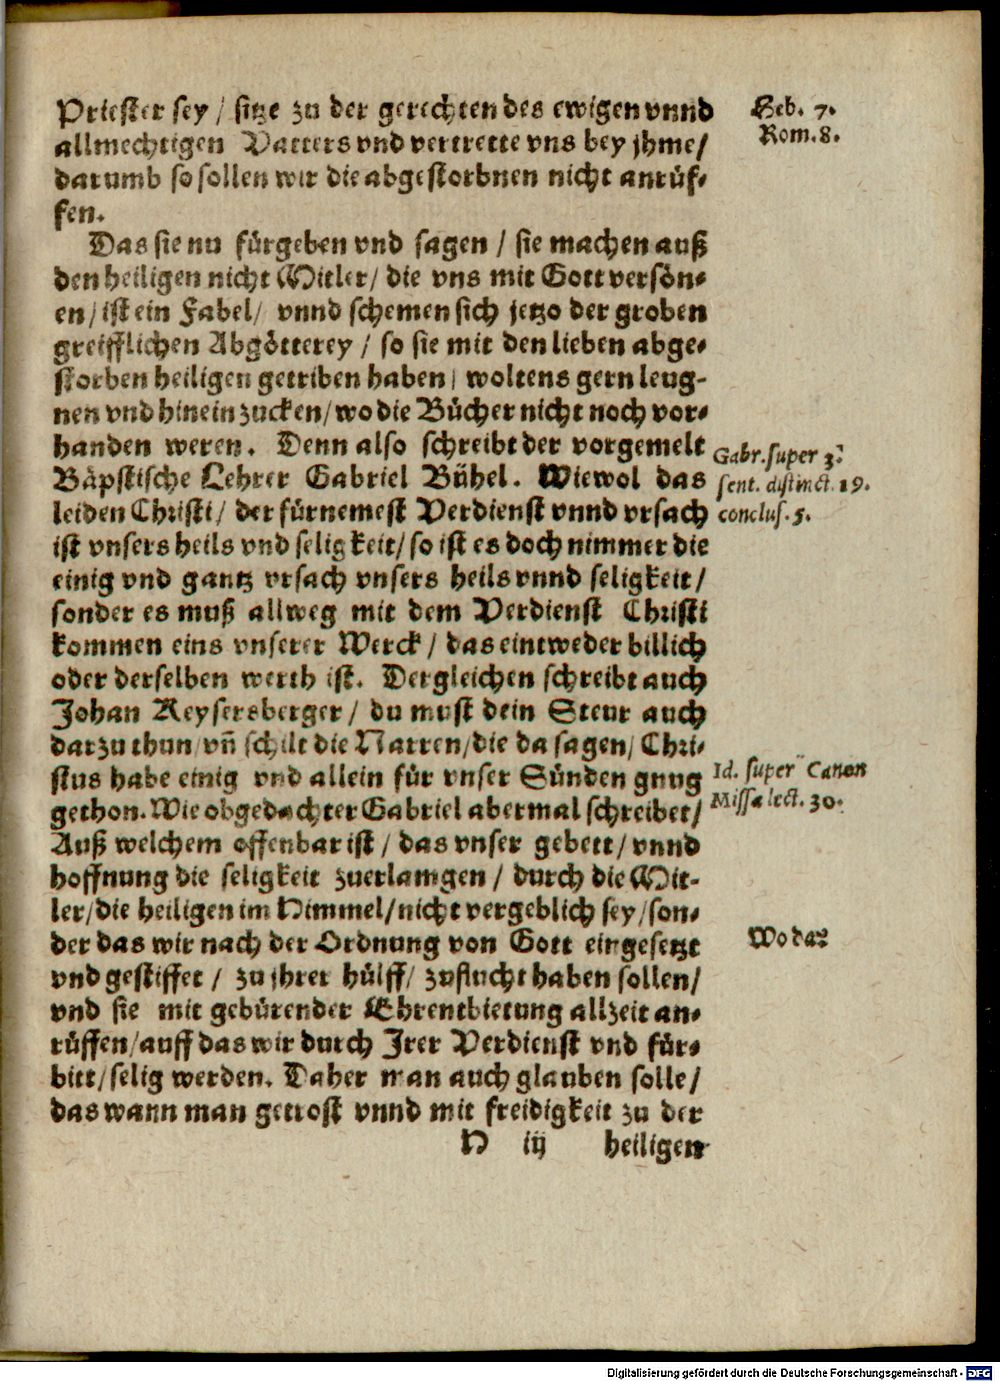 Priester sey / sitze zu der gerechten des ewigen vnnd
allmechtigen Vatters vnd vertrette vns bey jhme/
darumb so sollen wir die abgestorbnen nicht anrüf-
fen.
Das sie nu fürgeben vnd sagen / sie machen auß
den heiligen nicht Mitler/ die vns mit Gott versön-
en/ ist ein Fabel/ vnnd schemen sich jetzo der groben
greifflichen Abgötterey / so sie mit den lieben abge-
storben heiligen getriben haben/ woltens gern leug-
nen vnd hinein zucken/ wo die Bücher nicht noch vor-
handen weren. Denn also schreibt der vorgemelt
Bäpstische Lehrer Gabriel Bühel. Wiewol das
leiden Christi/ der fürnemest Verdienst vnnd vrsach
ist vnsers heils vnd seligkeit/ so ist es doch nimmer die
einig vnd gantz vrsach vnsers heils vnnd seligkeit/
sonder es muß allweg mit dem Verdienst Christi
kommen eins vnserer Werck/ das eintweder billich
oder derselben werth ist. Dergleichen schreibt auch
Johan Keysersberger/ du must dein Steur auch
darzu thun/ vñ schilt die Narren/ die da sagen/ Chri-
stus habe einig vnd allein für vnser Sünden gnug
gethon. Wie obgedachter Gabriel abermal schreibet/
Auß welchem offenbar ist/ das vnser gebett/ vnnd
hoffnung die seligkeit zuerlamgen/ durch die Mit-
ler/ die heiligen im Himmel/ nicht vergeblich sey/ son-
der das wir nach der Ordnung von Gott eingesetzt
vnd gestiffet / zu jhrer hülff/ zuflucht haben sollen/
vnd sie mit gebürender Ehrentbietung allzeit an-
rüffen/ auff das wir durch Irer Verdienst vnd für-
bitt/ selig werden. Daher man auch glauben solle/
das wann man getrost vnnd mit freidigkeit zu der
N iij heiligen
Heb. 7.
Rom. 8.
Gabr. super 3.
sent. distinct. 19.
conclus. 5.
Id. super Canon
Missa lect. 30.
Wo da?
Digitalisierung gefördert durch die Deutsche Forschungsgemeinschaft - DFG